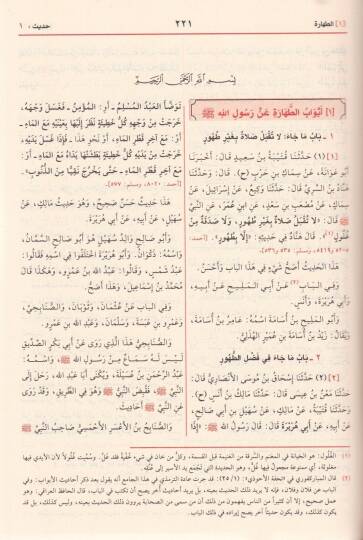 [١] الطهارة
٢٢١
حديث: ١
بِسْمِ اللهِ الرَّحْمٰنِ الرَّحِيْمِ
[١] أَبْوَابُ الطَّهَارَةِ عَنْ رَسُولِ اللهِ ﷺ
١ - بَابُ مَا جَاءَ: لَا تُقْبَلُ صَلَاةٌ بِغَيْرِ طُهُورٍ
[١] (١) حَدَّثَنَا قُتَيْبَةُ بْنُ سَعِيدٍ قَالَ: أَخْبَرَنَا
أَبُو عَوَانَةَ، عَنْ سِمَاكِ بْنِ حَرْبٍ (ح). قَالَ: وَحَدَّثَنَا
هَنَّادُ بْنُ السَّرِيِّ قَالَ: حَدَّثَنَا وَكِيعٌ، عَنْ إِسْرَائِيلَ، عَنْ
سِمَاكٍ، عَنْ مُصْعَبِ بْنِ سَعْدٍ، عَنِ ابْنِ عُمَرَ، عَنِ النَّبِيِّ
ﷺ قَالَ: «لَا تُقْبَلُ صَلَاةٌ بِغَيْرِ طُهُورٍ، وَلَا صَدَقَةٌ مِنْ
غُلُولٍ». قَالَ هَنَّادٌ فِي حَدِيثِهِ: «إِلَّا بِطُهُورٍ».
هَذَا الْحَدِيثُ أَصَحُّ شَيْءٍ فِي هَذَا الْبَابِ وَأَحْسَنُ.
وَفِي الْبَابِ عَنْ أَبِي الْمَلِيحِ عَنْ أَبِيهِ،
وَأَبِي هُرَيْرَةَ، وَأَنَسٍ.
وَأَبُو الْمَلِيحِ بْنُ أُسَامَةَ اسْمُهُ: عَامِرُ بْنُ أُسَامَةَ،
وَيُقَالُ: زَيْدُ بْنُ أُسَامَةَ بْنِ عُمَيْرٍ الْهُذَلِيُّ.
٢ - بَابُ مَا جَاءَ فِي فَضْلِ الطُّهُورِ
[٢] (٢) حَدَّثَنَا إِسْحَاقُ بْنُ مُوسَى الْأَنْصَارِيُّ قَالَ:
حَدَّثَنَا مَعْنُ بْنُ عِيسَى قَالَ: حَدَّثَنَا مَالِكُ بْنُ أَنَسٍ (ح).
وَحَدَّثَنَا قُتَيْبَةُ، عَنْ مَالِكٍ، عَنْ سُهَيْلِ بْنِ أَبِي صَالِحٍ، عَنْ
أَبِيهِ، عَنْ أَبِي هُرَيْرَةَ قَالَ: قَالَ رَسُولُ اللهِ ﷺ: «إِذَا
تَوَضَّأَ الْعَبْدُ الْمُسْلِمُ - أَوِ: الْمُؤْمِنُ - فَغَسَلَ وَجْهَهُ،
خَرَجَتْ مِنْ وَجْهِهِ كُلُّ خَطِيئَةٍ نَظَرَ إِلَيْهَا بِعَيْنَيْهِ مَعَ الْمَاءِ -
أَوْ: مَعَ آخِرِ قَطْرِ الْمَاءِ، أَوْ نَحْوَ هَذَا - فَإِذَا غَسَلَ يَدَيْهِ،
خَرَجَتْ مِنْ يَدَيْهِ كُلُّ خَطِيئَةٍ بَطَشَتْهَا يَدَاهُ مَعَ الْمَاءِ - أَوْ:
مَعَ آخِرِ قَطْرِ الْمَاءِ - حَتَّى يَخْرُجَ نَقِيًّا مِنَ الذُّنُوبِ».
[أحمد: ٨٠٢٠، ومسلم: ٥٧٧].
هَذَا حَدِيثٌ حَسَنٌ صَحِيحٌ، وَهُوَ حَدِيثُ مَالِكٍ، عَنْ
سُهَيْلٍ، عَنْ أَبِيهِ، عَنْ أَبِي هُرَيْرَةَ.
وَأَبُو صَالِحٍ وَالِدُ سُهَيْلٍ هُوَ أَبُو صَالِحٍ السَّمَّانُ،
وَاسْمُهُ: ذَكْوَانُ. وَأَبُو هُرَيْرَةَ اخْتَلَفُوا فِي اسْمِهِ فَقَالُوا:
عَبْدُ شَمْسٍ، وَقَالُوا: عَبْدُ اللهِ بْنُ عَمْرٍو، وَهَكَذَا قَالَ
مُحَمَّدُ بْنُ إِسْمَاعِيلَ، وَهَذَا أَصَحُّ.
وَفِي الْبَابِ عَنْ عُثْمَانَ، وَثَوْبَانَ، وَالصُّنَابِحِيِّ،
وَعَمْرِو بْنِ عَبَسَةَ، وَسَلْمَانَ، وَعَبْدِ اللهِ بْنِ عَمْرٍو.
وَالصُّنَابِحِيُّ هَذَا الَّذِي رَوَى عَنْ أَبِي بَكْرٍ الصِّدِّيقِ
لَيْسَ لَهُ سَمَاعٌ مِنْ رَسُولِ اللهِ ﷺ، وَاسْمُهُ:
عَبْدُ الرَّحْمَنِ بْنُ عُسَيْلَةَ، وَيُكْنَى أَبَا عَبْدِ اللهِ، رَحَلَ إِلَى
النَّبِيِّ ﷺ، فَقُبِضَ النَّبِيُّ ﷺ وَهُوَ فِي الطَّرِيقِ، وَقَدْ رَوَى
عَنِ النَّبِيِّ ﷺ أَحَادِيثَ.
وَالصُّنَابِحُ بْنُ الْأَعْسَرِ الْأَحْمَسِيُّ صَاحِبُ النَّبِيِّ
(١) الغُلُول: هو الخيانة في المغنم والسَّرِقة من الغنيمة قبل القسمة، وكلُّ من خان في شيء خُفْيةً فقد غَلَّ. وسُمِّيت غُلولاً لأن الأيدي فيها
مغلولة، أي ممنوعة مجعول فيها غُلٌّ، وهو الحديدة التي تجمع يد الأسير إلى عُنقه.
(٢) قال المباركفوري في التحفة